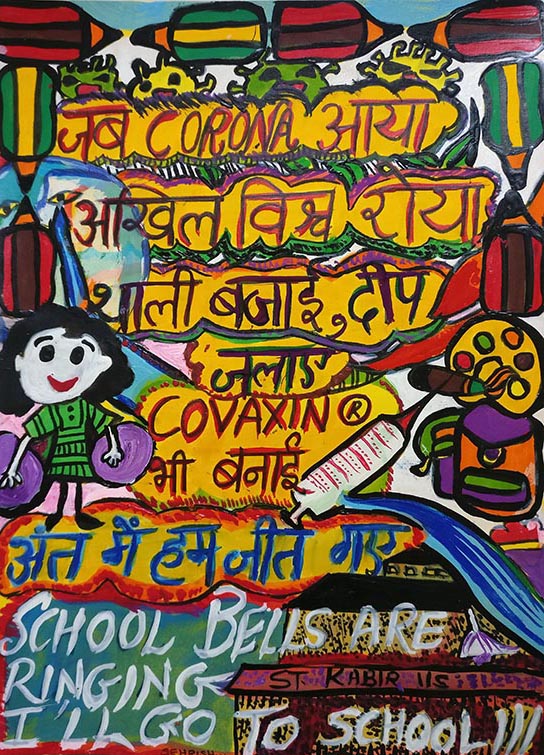 जब CORONA आया
अखिल विश्व रोया
थाली बजाई, दीप
जलाए
COVAXIN ®
भी बनाई
अंत में हम जीत गए
SCHOOL BELLS ARE
RINGING
ST. KABIR
I'LL GO TO SCHOOL !!!